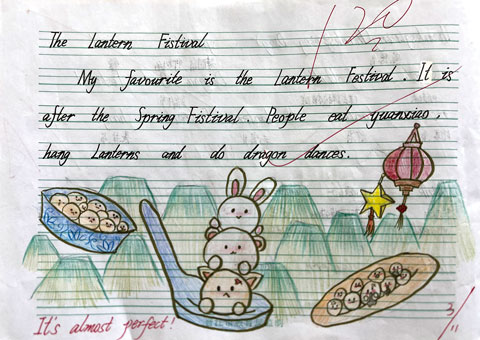 The Lantern Fistival
My favourite is the Lantern Festival. It is
after the Spring Fistival. People eat yuanxiao,
hang Lanterns and do dragon dances.
It's almost perfect!
3/11